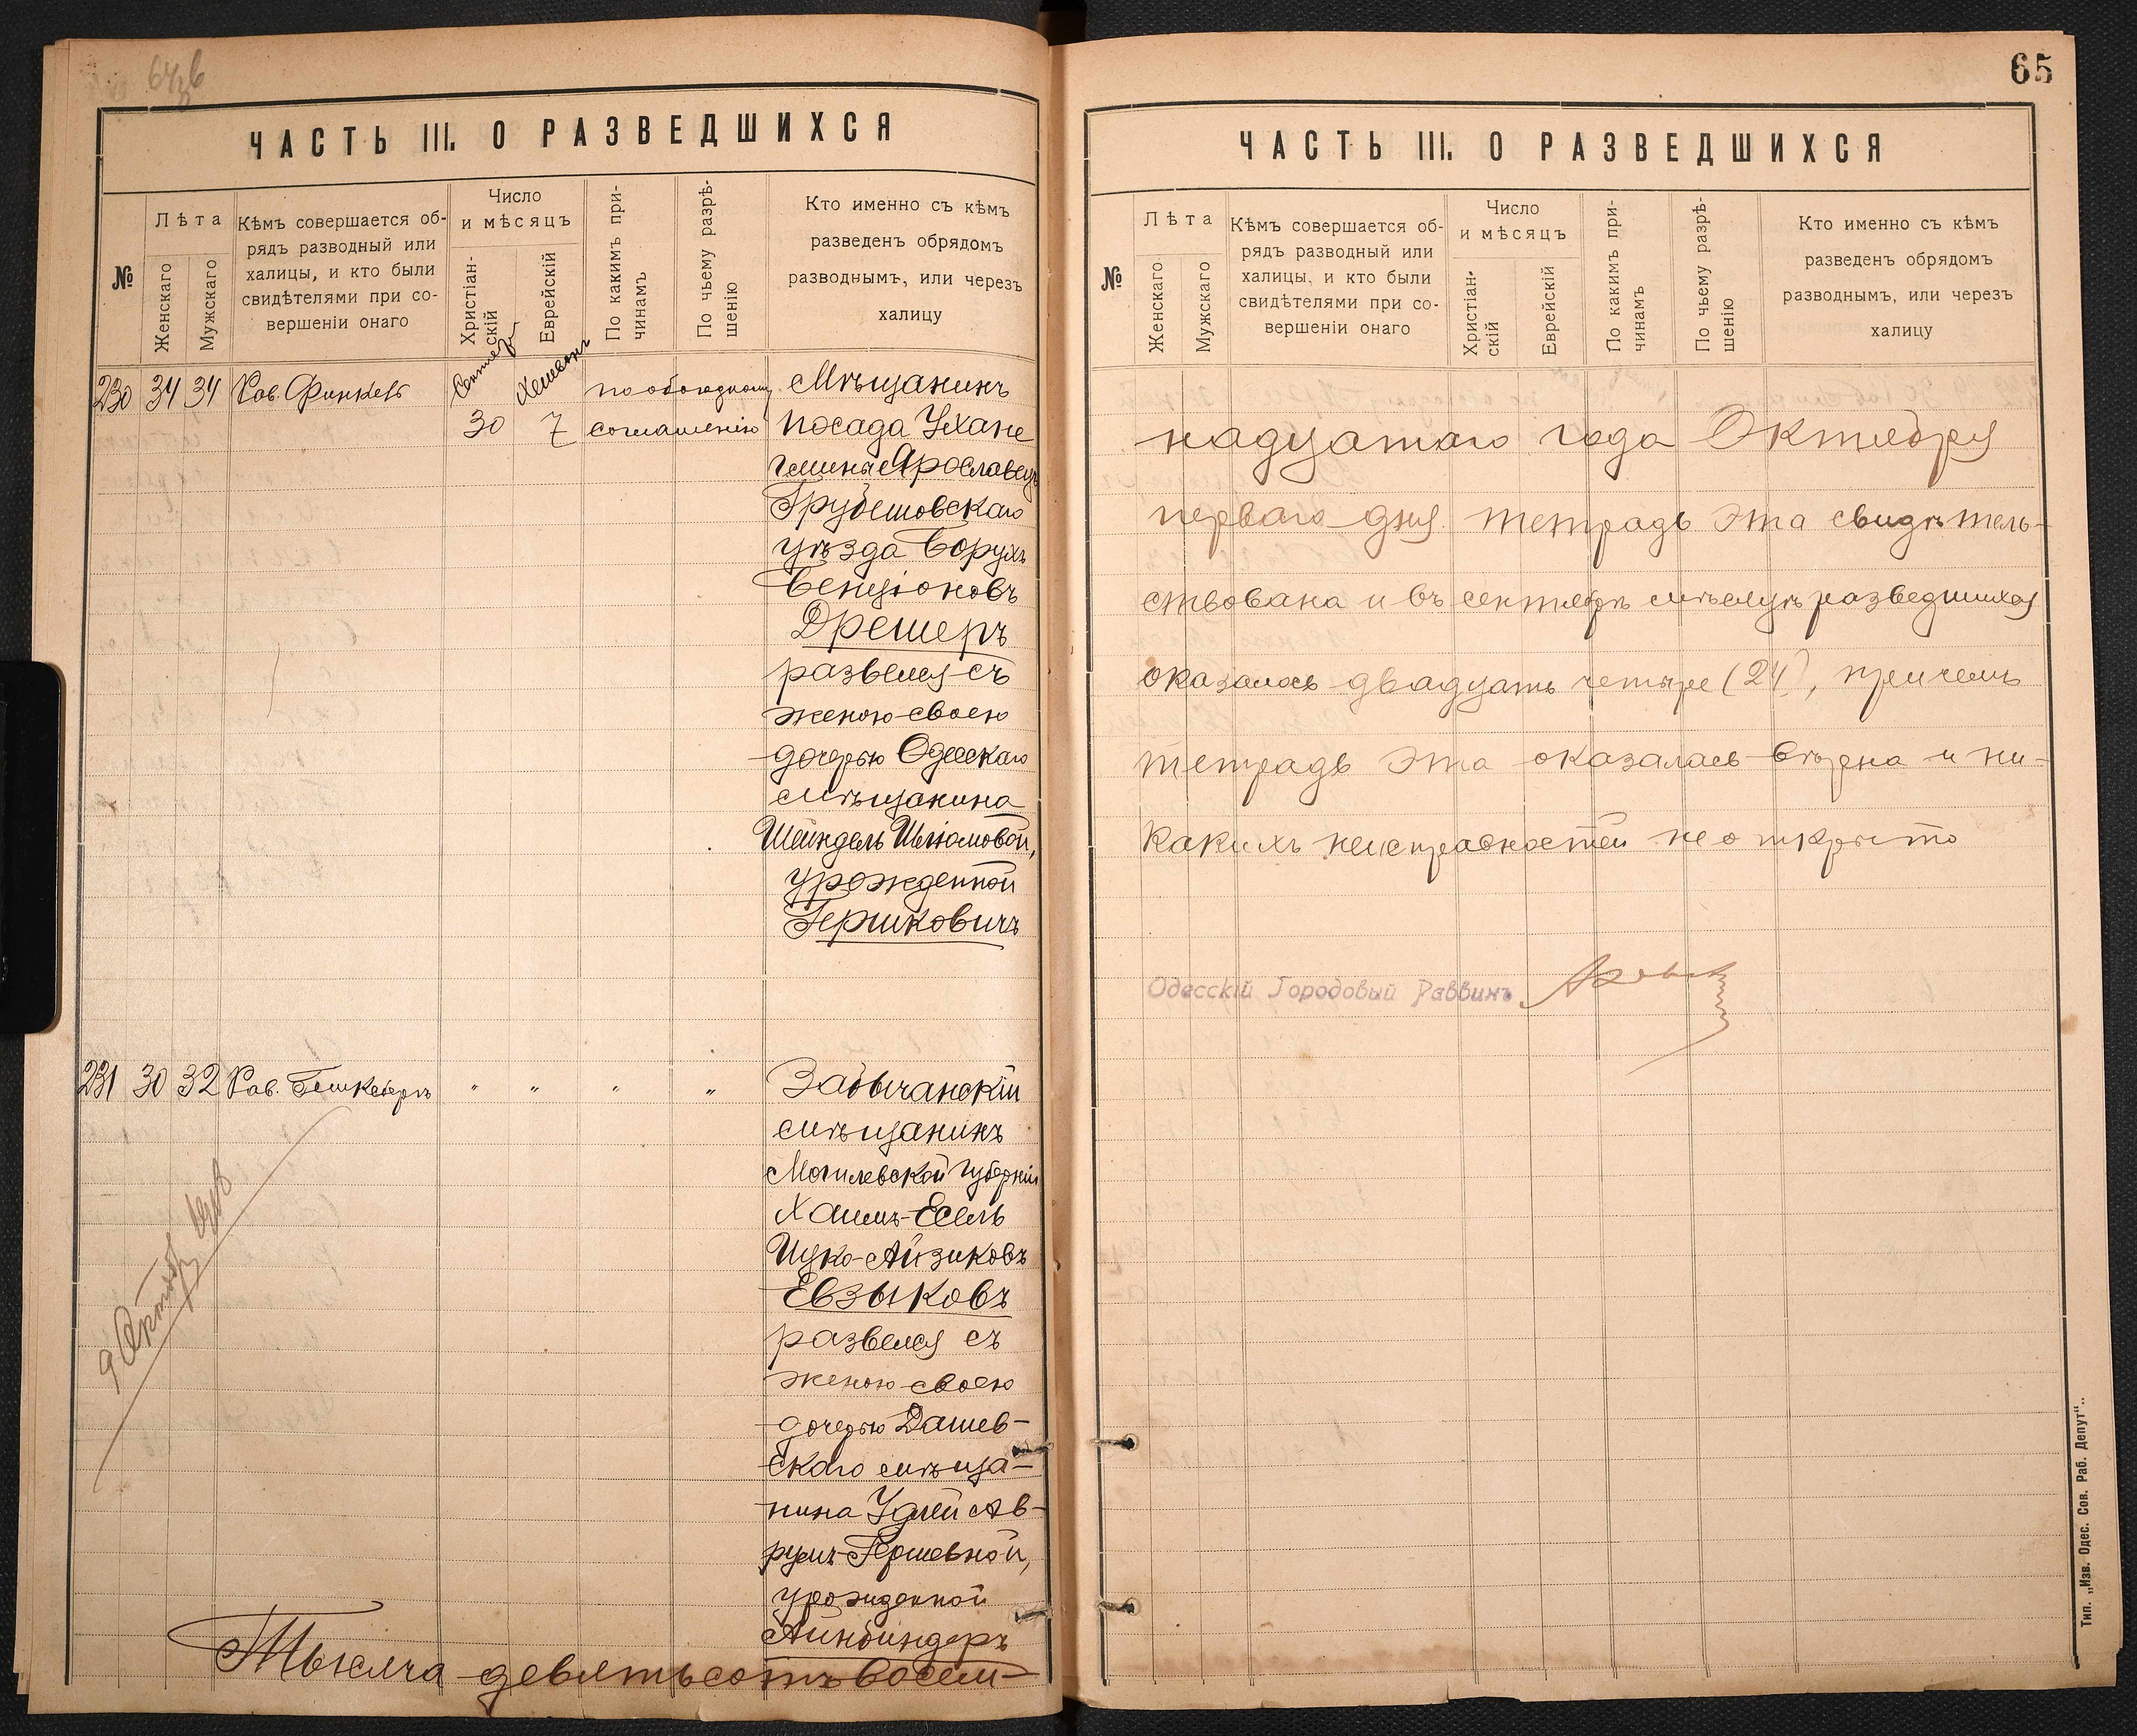 65
ЧАСТЬ III. О РАЗВЕДШИХСЯ
№
Лѣта
Женскаго
Мужскаго
Кѣмъ совершается об-
рядъ разводный или
халицы, и кто были
свидѣтелями при со-
вершеніи онаго
Число
и мѣсяцъ
Христіан-
скій
Еврейскій
По какимъ при-
чинамъ
По чьему разрѣ-
шенію
Кто именно съ кѣмъ
разведенъ обрядомъ
разводнымъ, или черезъ
халицу
230 34 34 Рав. Финкель
30 7
по обоюдному
соглашенію
Мѣщанинъ
посада Ухане
гмина Ярославецъ
Грубешовскаго
уѣзда Борухъ
Бенціоновъ
Дрешеръ
развелся съ
женою своею
дочерью Одесскаго
мѣщанина
Шейндель Шліомовой,
урожденной
Гершковичъ
231 30 32 Рав. " " " "
Забычанскій
мѣщанинъ
Могилевской губерніи
Хаимъ-Есель
Ицко-Айзиковъ
Евзыковъ
развелся съ
женою своею
дочерью Дашев-
скаго мѣща-
нина Удлей Ав-
румъ-Гершевной,
урожденной
Айнбиндеръ
Тысяча девятьсотъ восем-
ЧАСТЬ III. О РАЗВЕДШИХСЯ
№
Лѣта
Женскаго
Мужскаго
Кѣмъ совершается об-
рядъ разводный или
халицы, и кто были
свидѣтелями при со-
вершеніи онаго
Число
и мѣсяцъ
Христіан-
скій
Еврейскій
По какимъ при-
чинамъ
По чьему разрѣ-
шенію
Кто именно съ кѣмъ
разведенъ обрядомъ
разводнымъ, или черезъ
халицу
надцатаго года Октября
перваго дня тетрадь эта свидѣтель-
ствована и въ сентябрѣ мѣсяцѣ разведшихся
оказалось двадцать четыре (24), причемъ
тетрадь эта оказалась вѣрна и ни-
какихъ неисправностей не открыто
Одесскій Городовый Раввинъ
Тип. „Изв. Одес. Сов. Раб. Депут“.